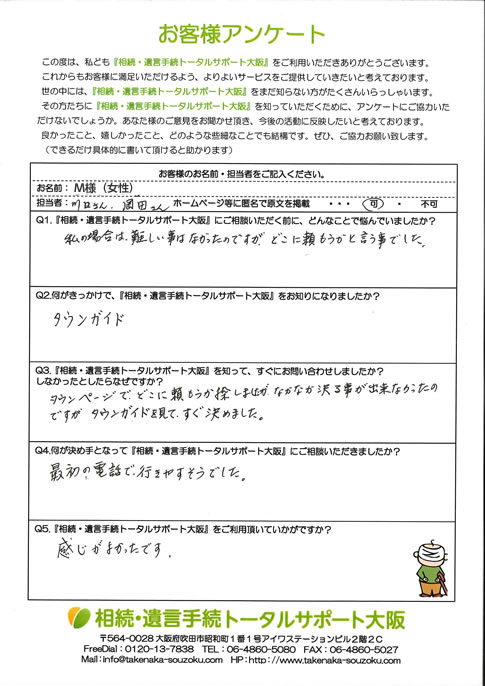 お客様アンケート
この度は、私ども『相続・遺言手続トータルサポート大阪』をご利用いただきありがとうございます。
これからもお客様に満足いただけるよう、よりよいサービスをご提供していきたいと考えております。
世の中には、『相続・遺言手続トータルサポート大阪』をまだ知らない方がたくさんいらっしゃいます。
その方たちに『相続・遺言手続トータルサポート大阪』を知っていただくために、アンケートにご協力いた
だけないでしょうか。あなた様のご意見をお聞かせ頂き、今後の活動に反映したいと考えております。
良かったこと、嬉しかったこと、どのような些細なことでも結構です。ぜひ、ご協力お願い致します。
（できるだけ具体的に書いて頂けると助かります）
お客様のお名前・担当者をご記入ください。
お名前：M様（女性）
担当者：川口さん、園田さん ホームページ等に匿名で原文を掲載 ・・・ 可 ・ 不可
Q1.『相続・遺言手続トータルサポート大阪』にご相談いただく前に、どんなことで悩んでいましたか？
私の場合は、難しい事はなかったのですが どこに頼もうかと言う事でした。
Q2.何がきっかけで、『相続・遺言手続トータルサポート大阪』をお知りになりましたか？
タウンガイド
Q3.『相続・遺言手続トータルサポート大阪』を知って、すぐにお問い合わせしましたか？
しなかったとしたらなぜですか？
タウンページで、どこに頼もうか捜しましたが、なかなか決る事が出来なかったの
ですが タウンガイドを見て、すぐ決めました。
Q4.何が決め手となって『相続・遺言手続トータルサポート大阪』にご相談いただきましたか？
最初の電話で、行きやすそうでした。
Q5.『相続・遺言手続トータルサポート大阪』をご利用頂いていかがですか？
感じがよかったです。
相続・遺言手続トータルサポート大阪
〒564-0028 大阪府吹田市昭和町1番1号アイワステーションビル2階2C
FreeDial：0120-13-7838 TEL：06-4860-5080 FAX：06-4860-5027
Mail：info@takenaka-souzoku.com HP：http://www.takenaka-souzoku.com